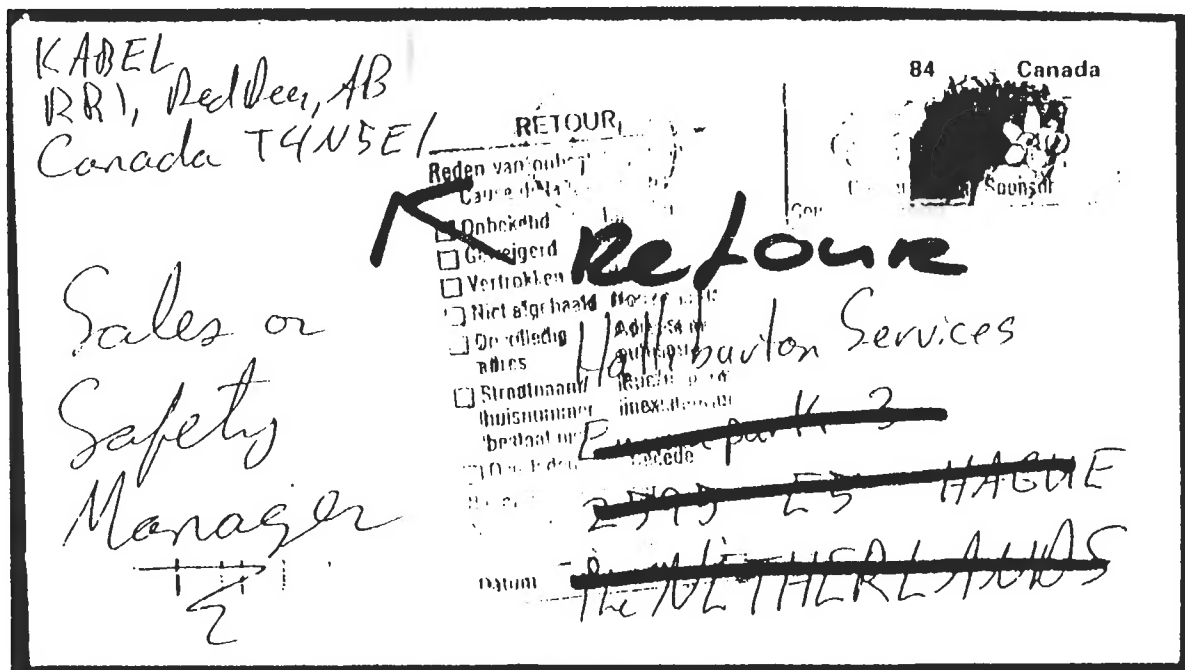 KABEL
RR1, Red Deer, AB
Canada T4N5E1
84 Canada
RETOUR
Reden van
Cause
Onbekend
Geweigerd
Vertrokken
Niet afgehaald
Onvolledig
adres
Straatnaam/
huisnummer
bestaat
Datum
Sponsor
Retour
Sales or
Safety
Manager
2
Halliburton Services
3
2595 ES HAGUE
The NETHERLANDS